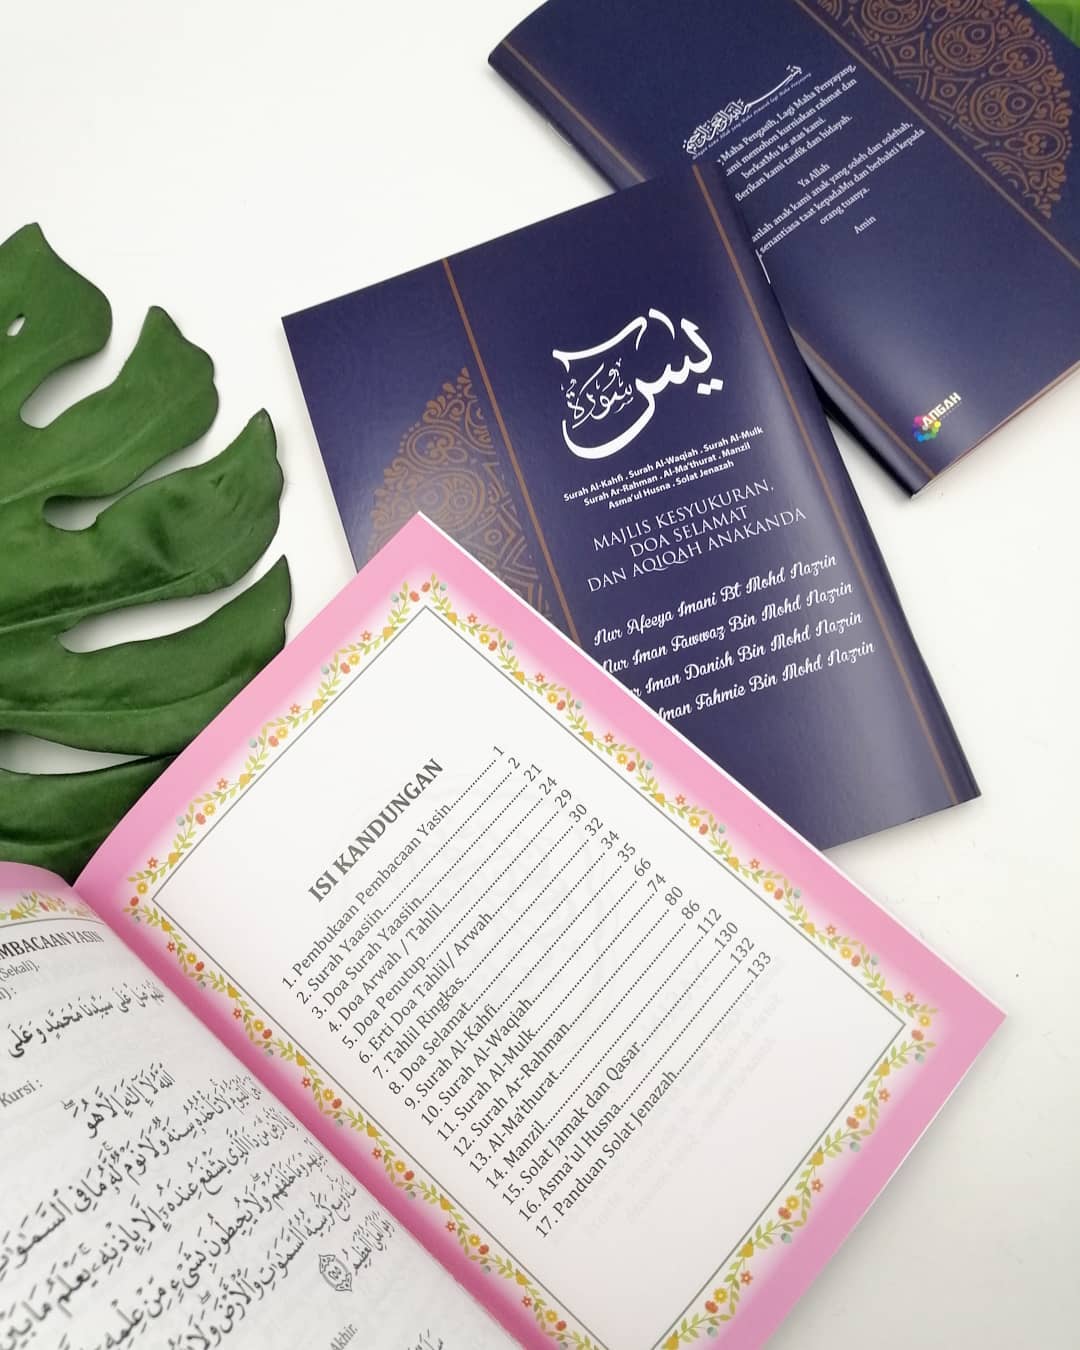 Maha Pengasih, Lagi Maha Penyayang,
memohon kurniakan rahmat dan
berkatMu ke atas kami.
Berikan kami taufik dan hidayah.
Ya Allah
anak kami anak yang soleh dan solehah,
senantiasa taat kepadaMu dan berbakti kepada
orang tuanya.
Amin
ANGAH
يس
سورة
Surah Al-Kahfi . Surah Al-Waqiah . Surah Al-Mulk
Surah Ar-Rahman . Al-Ma'thurat . Manzil
Asma'ul Husna . Solat Jenazah
MAJLIS KESYUKURAN,
DOA SELAMAT
DAN AQIQAH ANAKANDA
Nur Afeeya Imani Bt Mohd Nazrin
Nur Iman Fawwaz Bin Mohd Nazrin
Iman Danish Bin Mohd Nazrin
Iman Fahmie Bin Mohd Nazrin
ISI KANDUNGAN
1. Pembukaan Pembacaan Yasin..........1
2. Surah Yaasiin..........2
3. Doa Surah Yaasiin..........21
4. Doa Arwah / Tahlil..........24
5. Doa Penutup..........29
6. Erti Doa Tahlil/ Arwah..........30
7. Tahlil Ringkas..........32
8. Doa Selamat..........34
9. Surah Al-Kahfi..........35
10. Surah Al-Waqiah..........66
11. Surah Al-Mulk..........74
12. Surah Ar-Rahman..........80
13. Al-Ma'thurat..........86
14. Manzil..........112
15. Solat Jamak dan Qasar..........130
16. Asma'ul Husna..........132
17. Panduan Solat Jenazah..........133
MBACAAN YASIN
(Sekali).
سَيِّدِنَا مُحَمَّدٍ وَعَلَى
Kursi :
اللهُ لَآ إِلَٰهَ إِلَّا هُوَ
لَا تَأْخُذُهُ سِنَةٌ وَلَا نَوْمٌ لَّهُ مَا فِي السَّمَاوَاتِ
ذَا الَّذِي يَشْفَعُ عِندَهُ إِلَّا بِإِذْنِهِ يَعْلَمُ مَا بَيْنَ
وَمَا خَلْفَهُمْ وَلَا يُحِيطُونَ بِشَيْءٍ مِّنْ عِلْمِهِ
وَسِعَ كُرْسِيُّهُ السَّمَاوَاتِ وَالْأَرْضَ وَلَا
الْعَظِيمُ
Akhir.